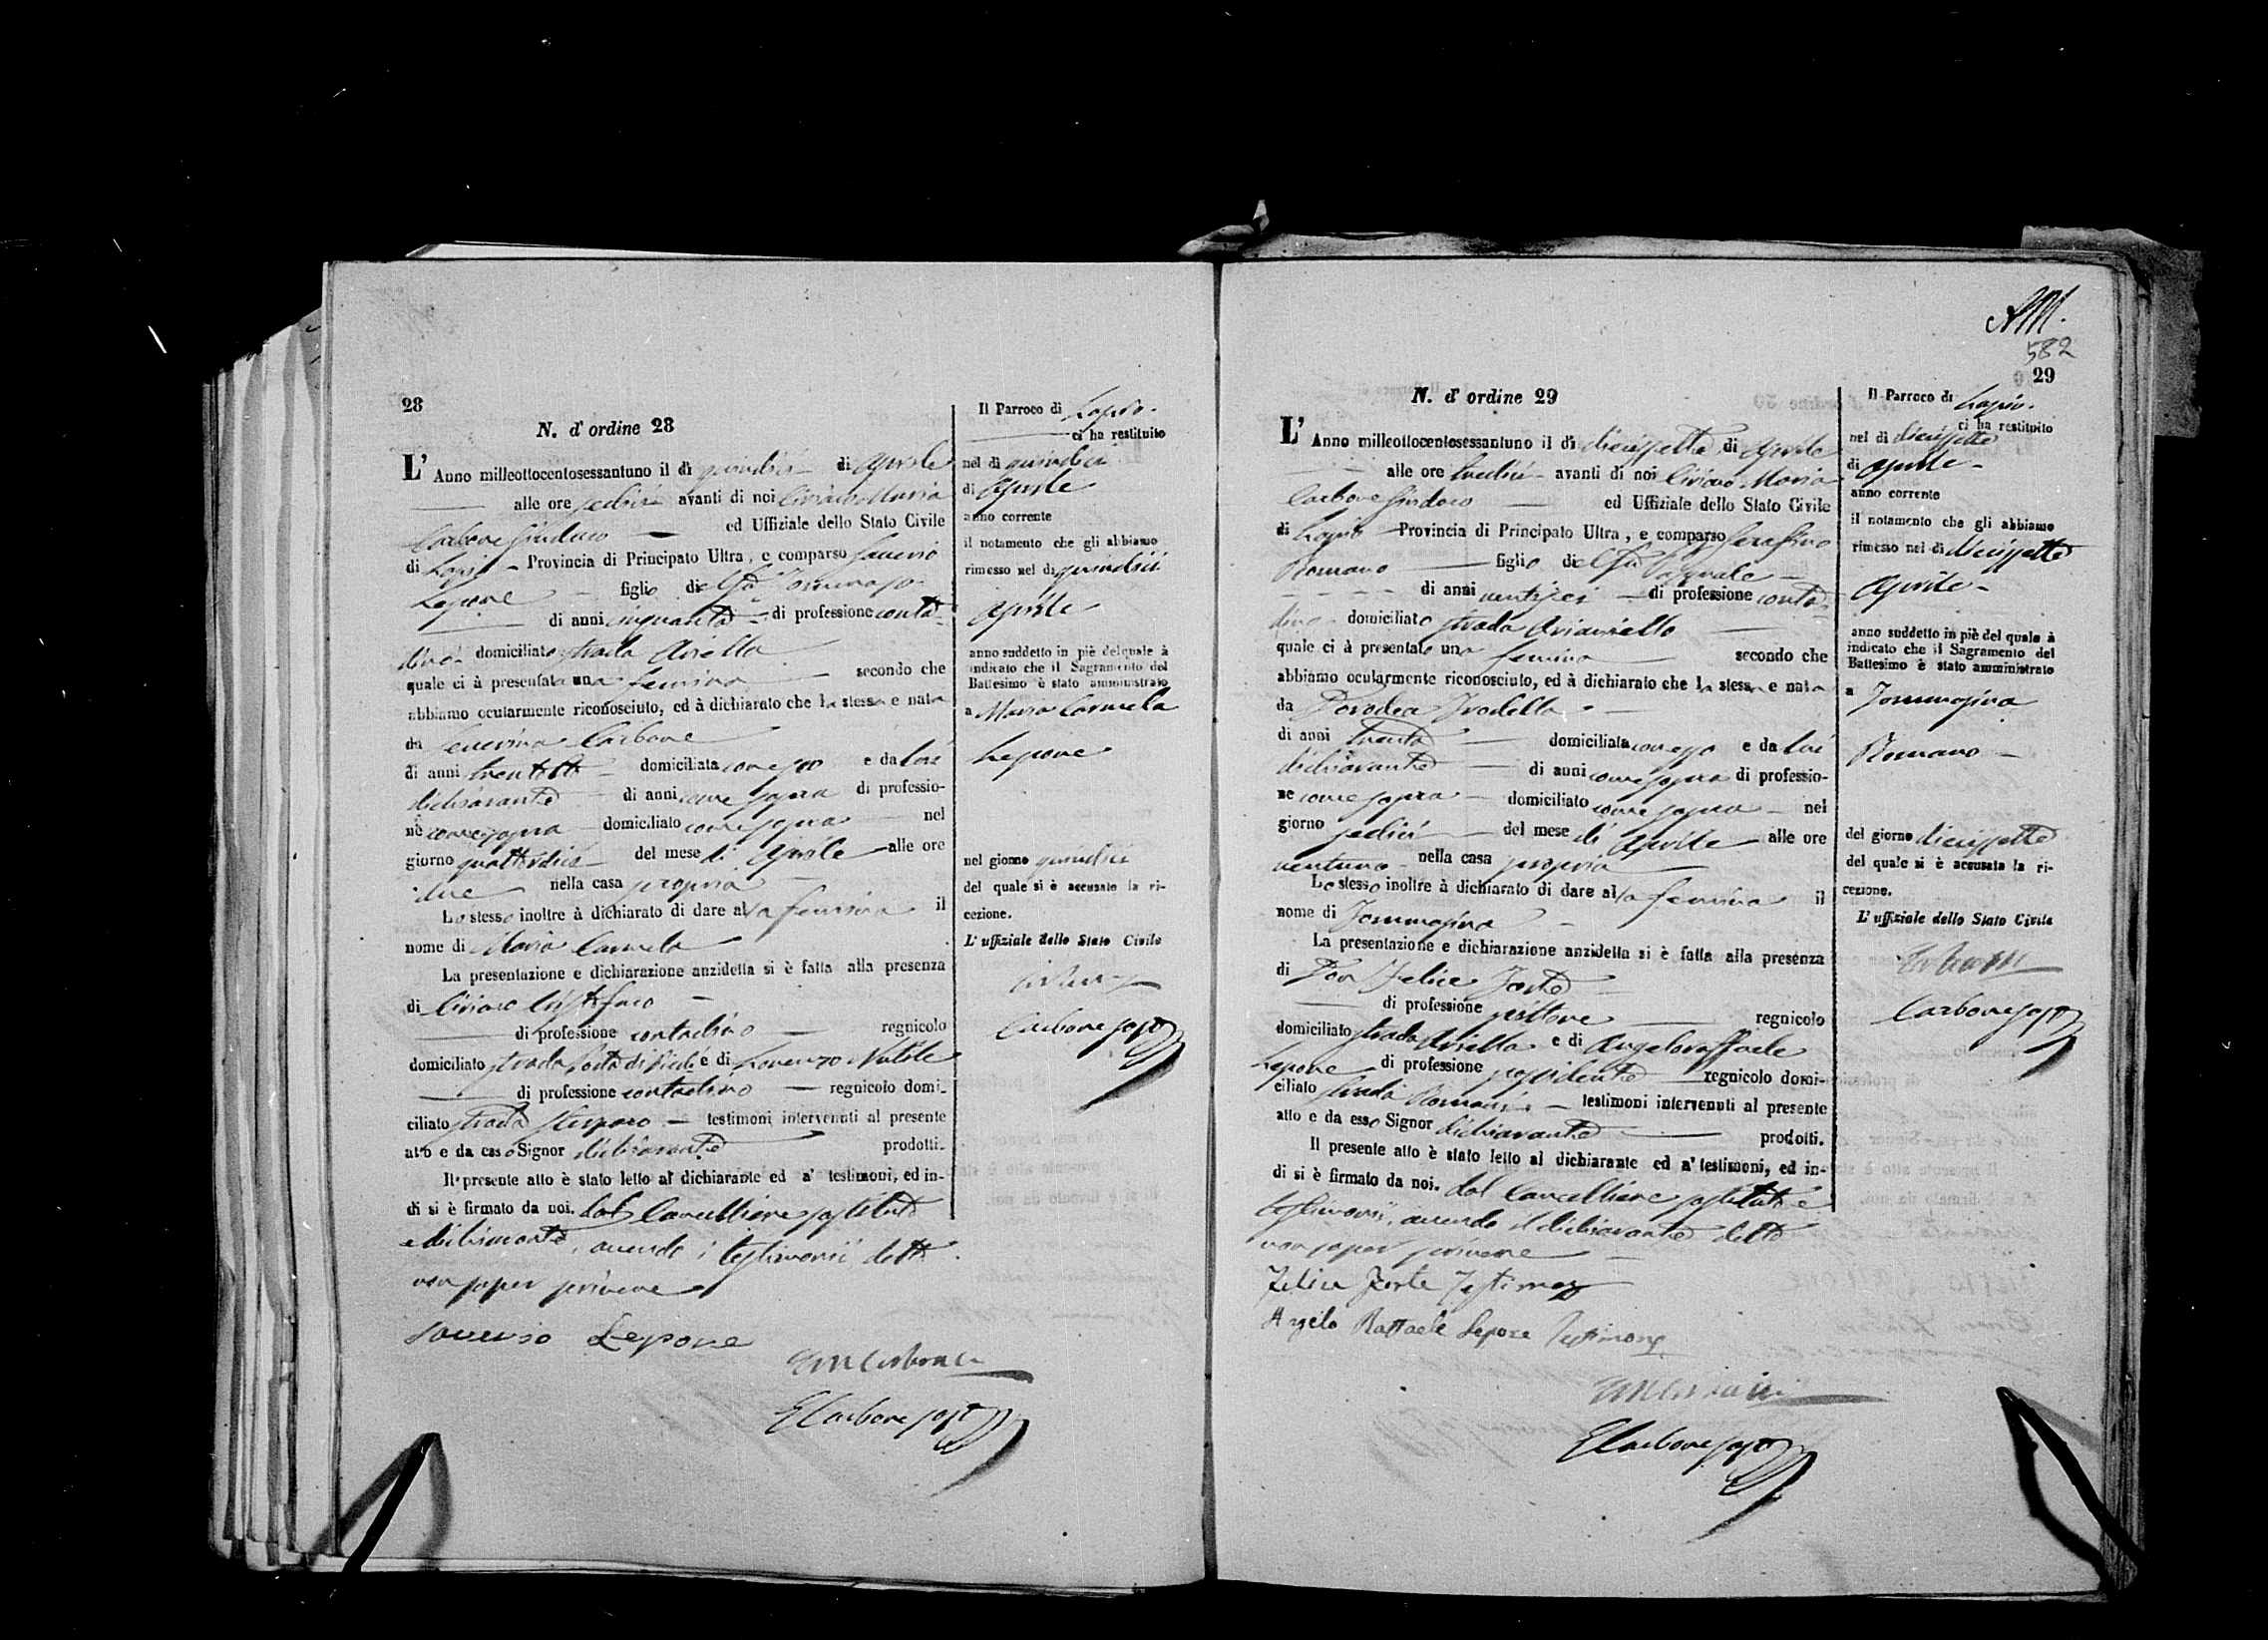 28
N. d' ordine 28
L' Anno milleottocentosessantuno il dì quindici di Aprile
alle ore sedici avanti di noi Ciriaco Maria
Carbone Sindaco ed Uffiziale dello Stato Civile
di Lapio Provincia di Principato Ultra, e comparso Saverio
Lepore figlio del fu Tommaso
di anni cinquanta di professione conta-
dino domiciliato strada Airella
quale ci à presentata una femina secondo che
abbiamo ocularmente riconosciuto, ed à dichiarato che la stessa e nata
da Severina Carbone
di anni trentotto domiciliata con esso e da lui
dichiarante di anni come sopra di professio-
ne come sopra domiciliato come sopra nel
giorno quattordici del mese di Aprile alle ore
due nella casa propria
Lo stesso inoltre à dichiarato di dare alla femina il
nome di Maria Carmela
La presentazione e dichiarazione anzidetta si è fatta alla presenza
di Ciriaco
di professione contadino regnicolo
domiciliato strada Porta di e di Lorenzo
di professione contadino regnicolo domi-
ciliato strada testimoni intervenuti al presente
atto e da esso Signor dichiarante prodotti.
Il presente atto è stato letto al dichiarante ed a' testimoni, ed in-
di si è firmato da noi. dal Cancelliere sostituto
e dichiarante, avendo i testimonii detto
non saper scrivere
Saverio Lepore
CM Carbone
E Carbone sost
Il Parroco di Lapio.
ci ha restituito
nel dì quindici
di Aprile
anno corrente
il notamento che gli abbiamo
rimesso nel dì quindici
Aprile
anno suddetto in piè del quale à
indicato che il Sagramento del
Battesimo è stato amministrato
a Maria Carmela
Lepore
nel giorno quindici
del quale si è accusato la ri-
cezione.
L' uffiziale dello Stato Civile
Carbone sost
AM.
582
29
N. d' ordine 29
L' Anno milleottocentosessantuno il dì diecissette di Aprile
alle ore tredici avanti di noi Ciriaco Maria
Carbone Sindaco ed Uffiziale dello Stato Civile
di Lapio Provincia di Principato Ultra, e comparso Serafino
Romano figlio del fu Pasquale
di anni ventisei di professione conta-
dino domiciliato strada Arianiello
quale ci à presentato una femina secondo che
abbiamo ocularmente riconosciuto, ed à dichiarato che la stessa e nata
da Dorodea Trodella
di anni trenta domiciliata con esso e da lui
dichiarante di anni come sopra di professio-
ne come sopra domiciliato come sopra nel
giorno sedici del mese di Aprile alle ore
ventuno nella casa propria
Lo stesso inoltre à dichiarato di dare alla femina il
nome di Tommasina
La presentazione e dichiarazione anzidetta si è fatta alla presenza
di Don Felice Forte
di professione regnicolo
domiciliato strada Airella e di Angeloraffaele
Lepore di professione possidente regnicolo domi-
ciliato strada Romani testimoni intervenuti al presente
atto e da esso Signor dichiarante prodotti.
Il presente atto è stato letto al dichiarante ed a' testimoni, ed in-
di si è firmato da noi. dal Cancelliere sostituto e
testimonii, avendo il dichiarante detto
non saper scrivere
Felice Forte Testimone
Angelo Raffaele Lepore Testimone
E Carbone sost
Il Parroco di Lapio.
ci ha restituito
nel dì diecissette
di Aprile
anno corrente
il notamento che gli abbiamo
rimesso nel dì diecissette
Aprile
anno suddetto in piè del quale à
indicato che il Sagramento del
Battesimo è stato amministrato
a Tommasina
Romano
del giorno diecissette
del quale si è accusata la ri-
cezione.
L' uffiziale dello Stato Civile
Carbone sost